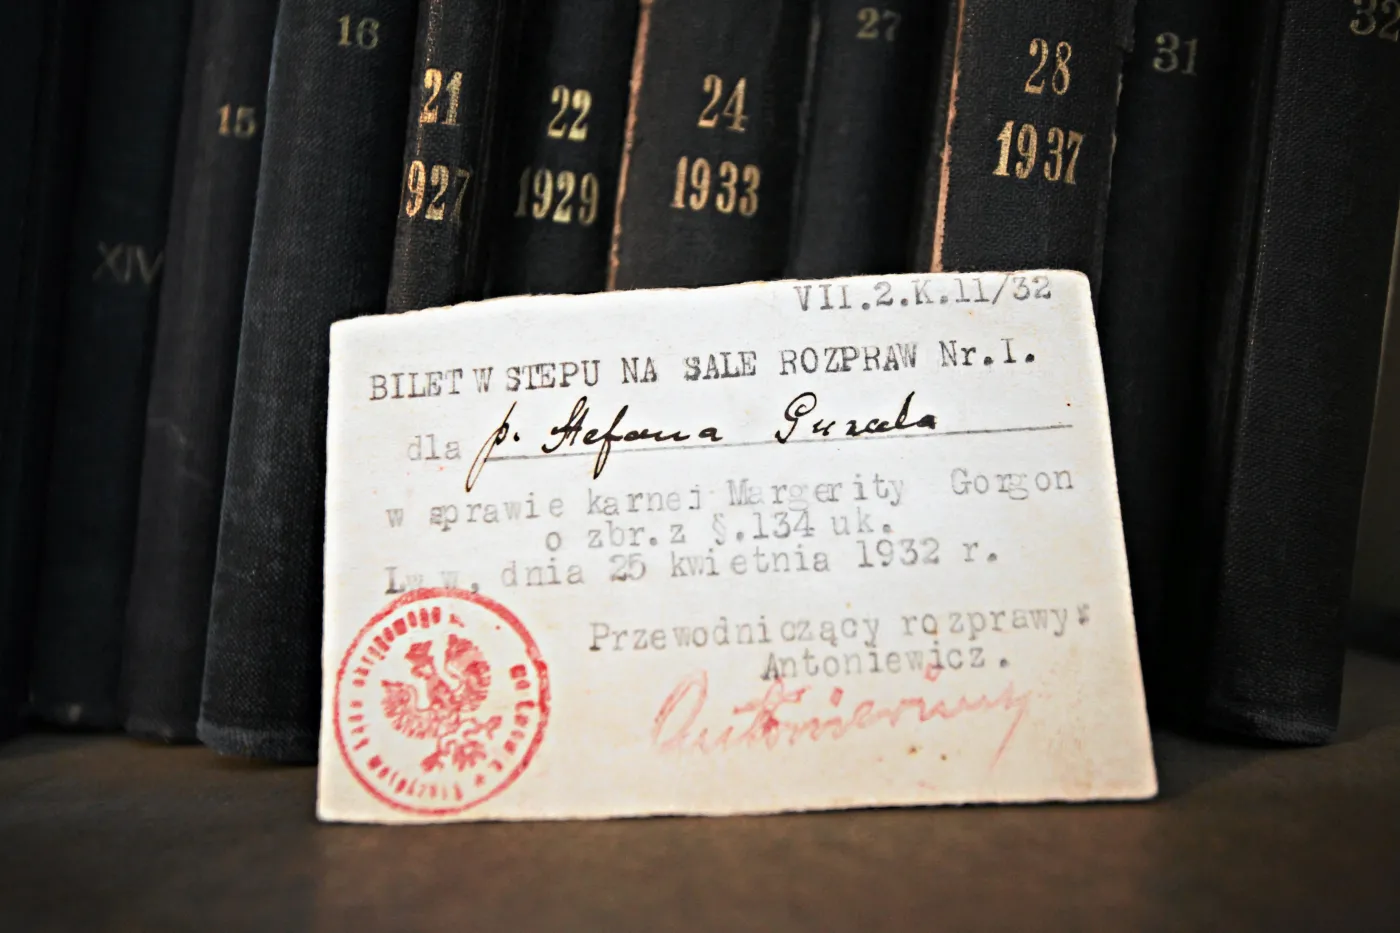 16
27
31
32
15
21
927
22
1929
24
1933
28
1937
XIV
VII.2.K.11/32
BILET W STEPU NA SALE ROZPRAW Nr.I.
dla p. Stefana
w sprawie karnej Margerity Gorgon
o zbr.z §.134 uk.
dnia 25 kwietnia 1932 r.
Przewodniczący rozprawy:
Antoniewicz.
Antoniewicz